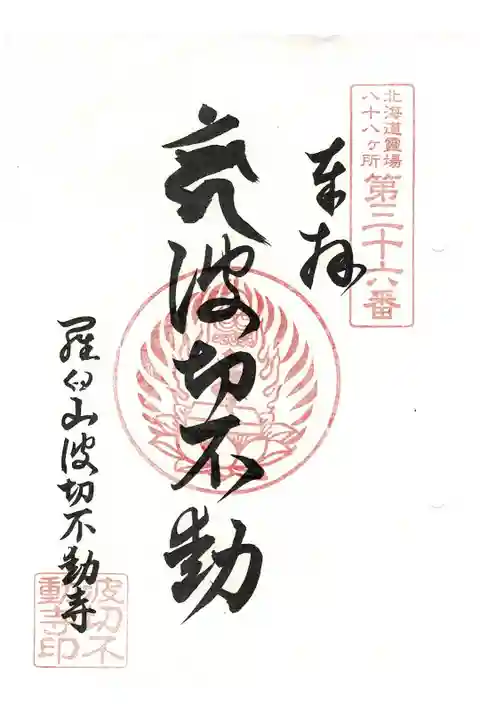 北海道霊場
八十八ヶ所
第三十六番
奉拝
波切不動
羅臼山波切不動寺
波切不
動寺印